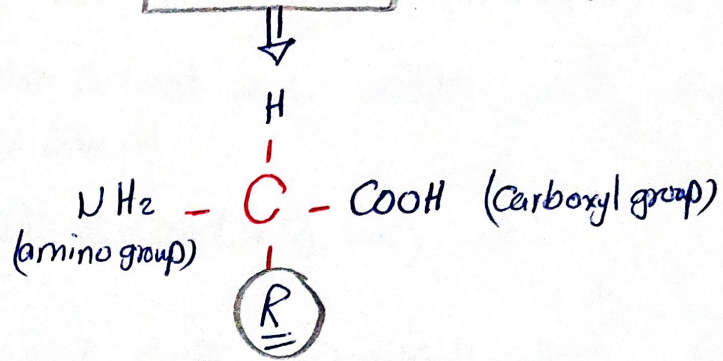 H
NH2 - C - COOH (Carboxyl group)
(amino group)
R